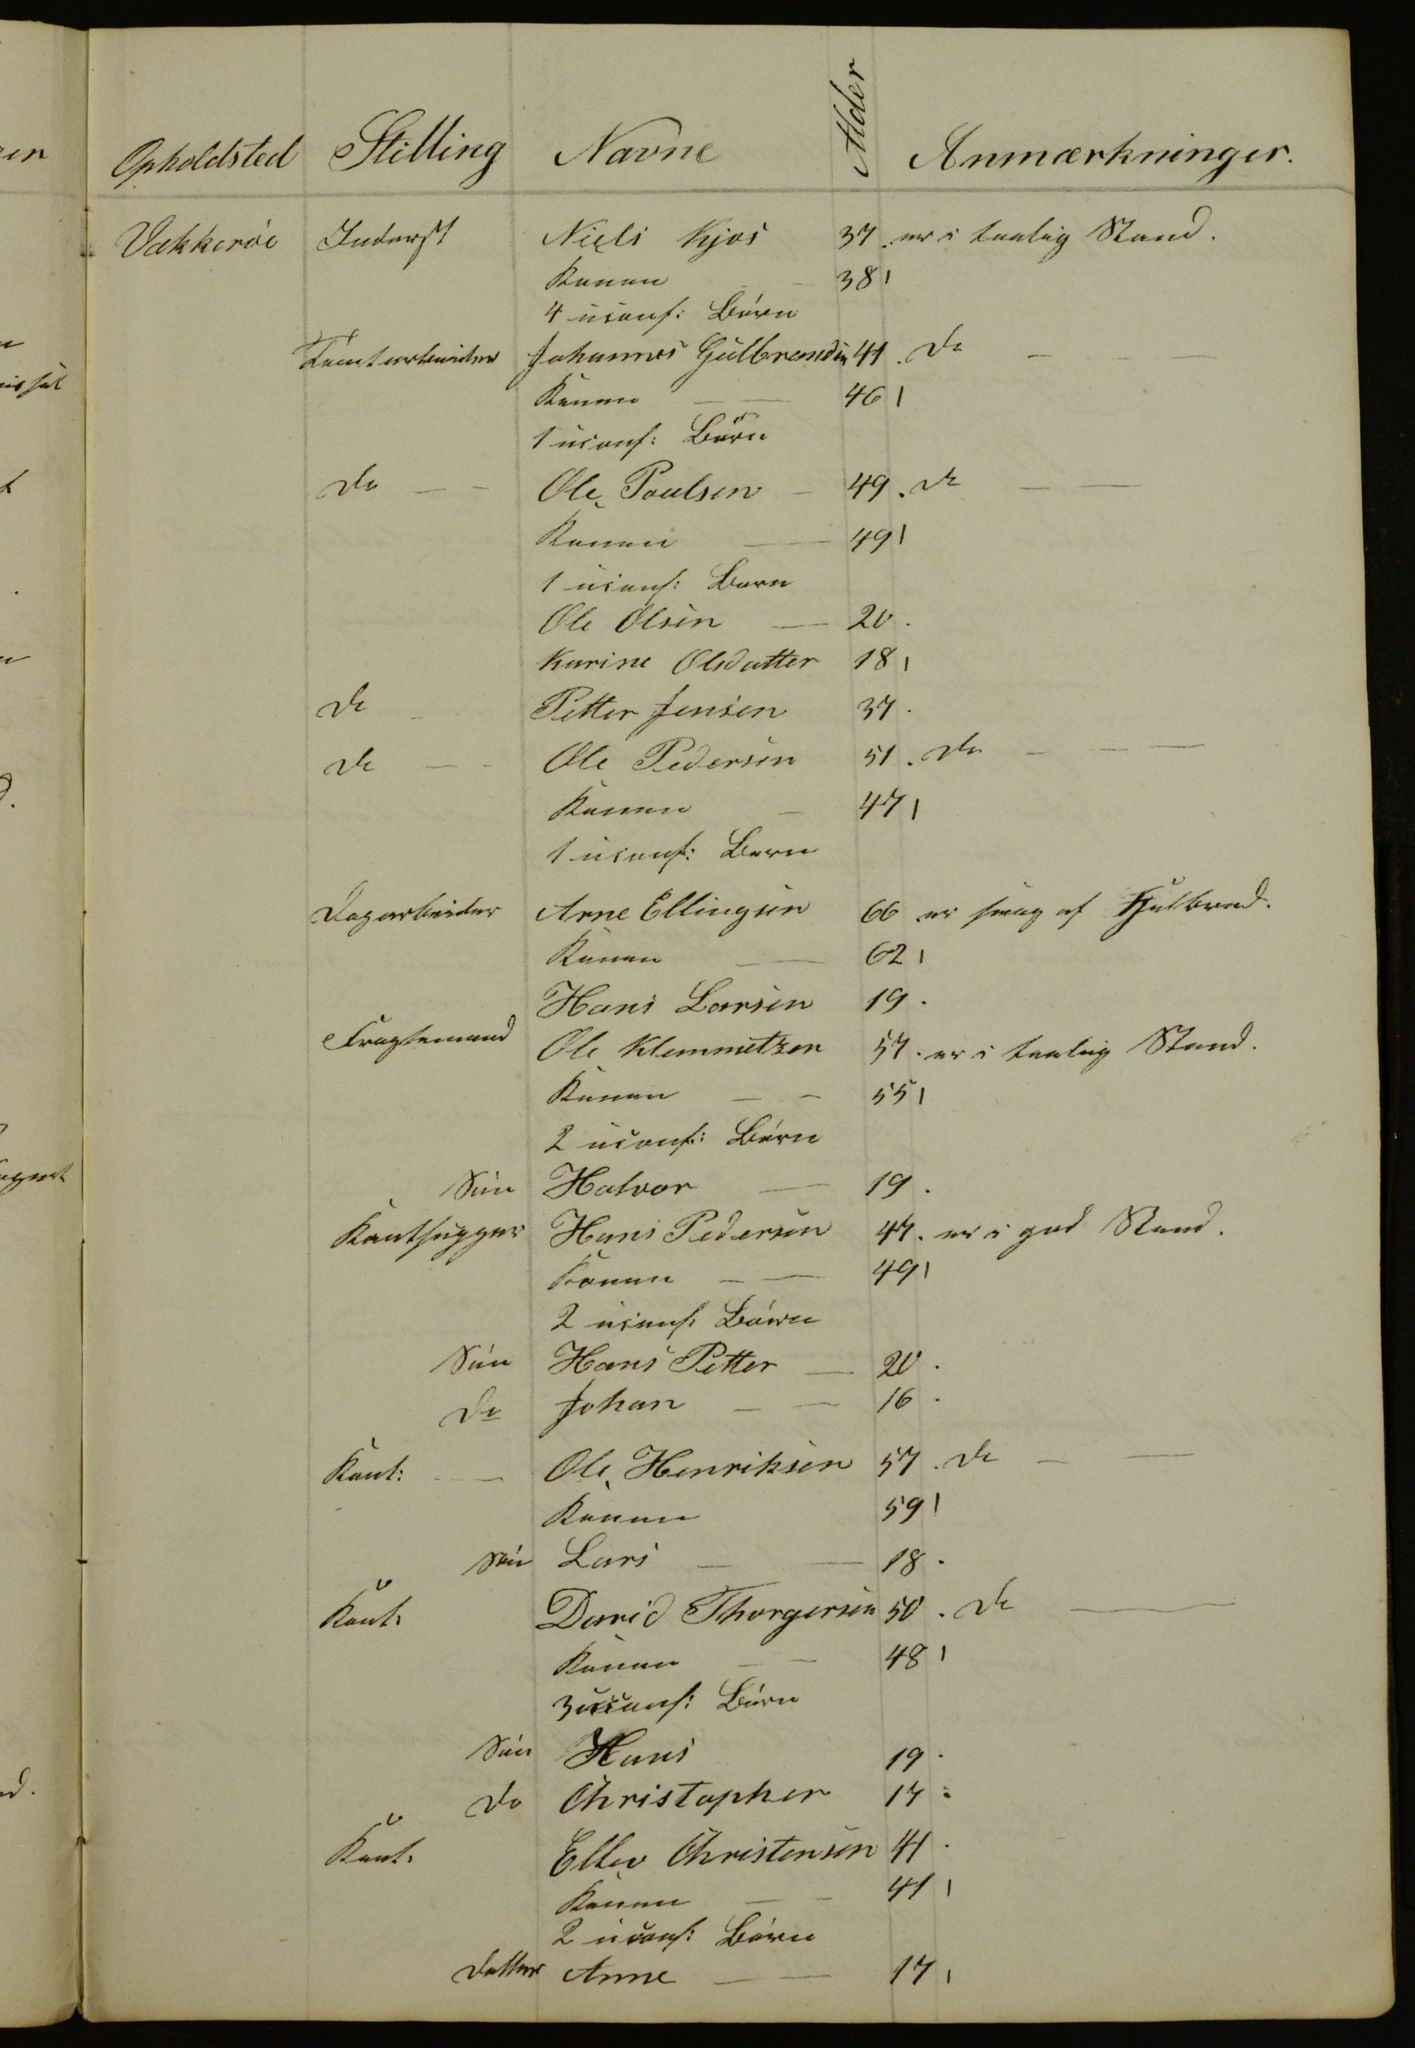 Opholdsted Stilling Navne Alder Anmærkninger.
Vækkerøe Inderst Niels Kjos 37. er i taalig Stand.
Konen 38
4 uconf: Børn
Tomtearbeider Johannes Gulbrandsen 41. do
Konen 46
1 uconf: Børn
do Ole Poulsen 49. do
Konen 49
1 uconf: Barn
Ole Olsen 20.
Karine Olsdatter 18
do Petter Jensen 37.
do Ole Pedersen 51. do
Konen 47
1 uconf: Barn
Dagarbeider Arne Ellingsen 66 er svag af
Konen 62
Hans Larsen 19.
Fragtemand Ole Klemmetzen 57. er i taalig Stand.
Konen 55
2 uconf: Børn
Søn Halvor 19.
Kanthugger Hans Pedersen 47. er i god Stand.
Konen 49
2 uconf: Børn
Søn Hans Petter 20.
do Johan 16.
Kant: Ole Henriksen 57. do
Konen 59
Søn Lars 18.
Kant: David Thorgersen 50. do
Konen 48
3 uconf: Børn
Søn Hans 19.
do Christopher 17.
Kant: Ellev Christensen 41.
Konen 41
2 uconf: Børn
Datter Anne 17